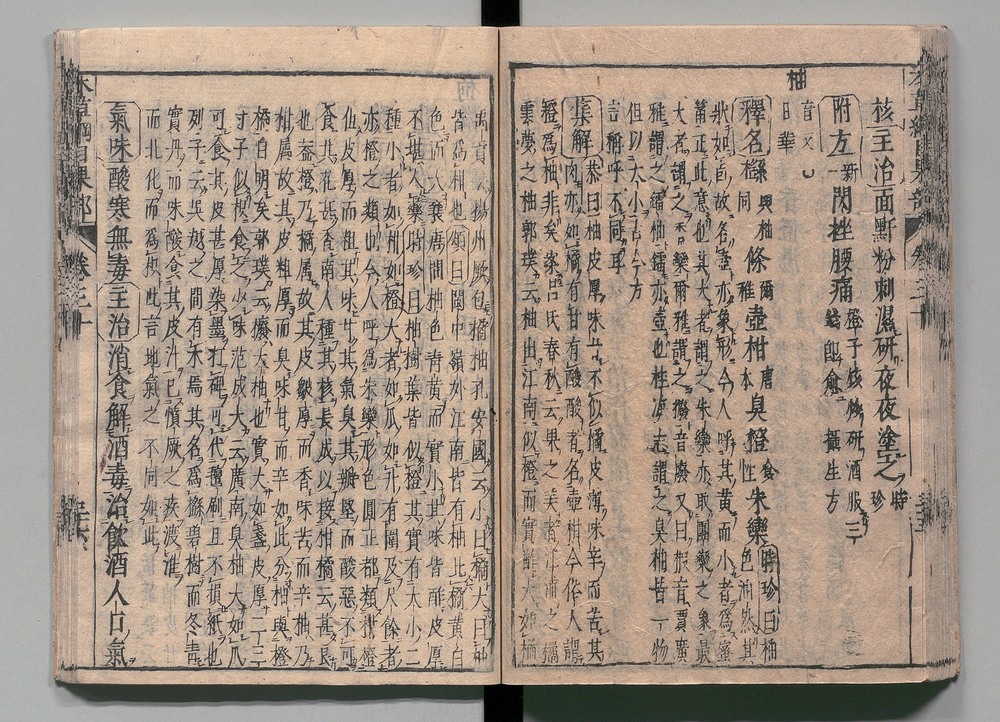 核主治面䵟粉刺濕研夜夜塗之時珍
附方新一閃挫腰痛橙子核炒研酒服三錢即愈攝生方
柚音又日華
釋名櫾與柚同條爾雅壺柑唐本臭橙食性朱欒時珍曰柚色油然其
狀如卣故名壺亦象形今人呼其黃而小者為蜜
筩正此意也其大者謂之朱欒亦取團欒之象最
大者謂之香欒爾雅謂之櫠音廢又曰椵音賈廣
雅謂之鐳柚鐳亦壺也桂海志謂之臭柚皆一物
但以大小古今方
言稱呼不同耳
集解恭曰柚皮厚味甘不似橘皮薄味辛而苦其
肉亦如橘有甘有酸者名壺柑今俗人謂
橙為柚非矣案呂氏春秋云果之美者江浦之橘
雲夢之柚郭璞云柚出江南似橙而實酢大如橘
禹貢云揚州厥包橘柚孔安國云小曰橘大曰柚
皆為柑也頌曰閩中嶺外江南皆有柚比橘黃白
色而大襄唐間柚色青黃而實小其味皆酢皮厚
不堪入藥時珍曰柚樹葉皆似橙其實有大小二
種小者如柑如橙大者如瓜如升有圍及尺餘者
亦橙之類也今人呼為朱欒形色圓正都類柑橙
但皮厚而粗其味甘其氣臭其瓣堅而酸惡不可
食其花甚香南人種其核長成以接柑橘云甚良
也蓋橙乃橘屬故其皮皺厚而香味苦而辛柚乃
柑屬故其皮粗厚而臭味甘而辛如此分柚與橙
橘自明矣郭璞云櫠大柚也實大如盞皮厚二三
寸子似枳食之少味范成大云廣南臭柚大如瓜
可食其皮甚厚染墨打碑可代氊刷且不損紙也
列子云吳越之間有木焉其名為櫾碧樹而冬青
實丹而味酸食其皮汁已憤厥之疾渡淮
而北化而為枳此言地氣之不同如此
氣味酸寒無毒主治消食解酒毒治飲酒人口氣
本草綱目果部
卷三十